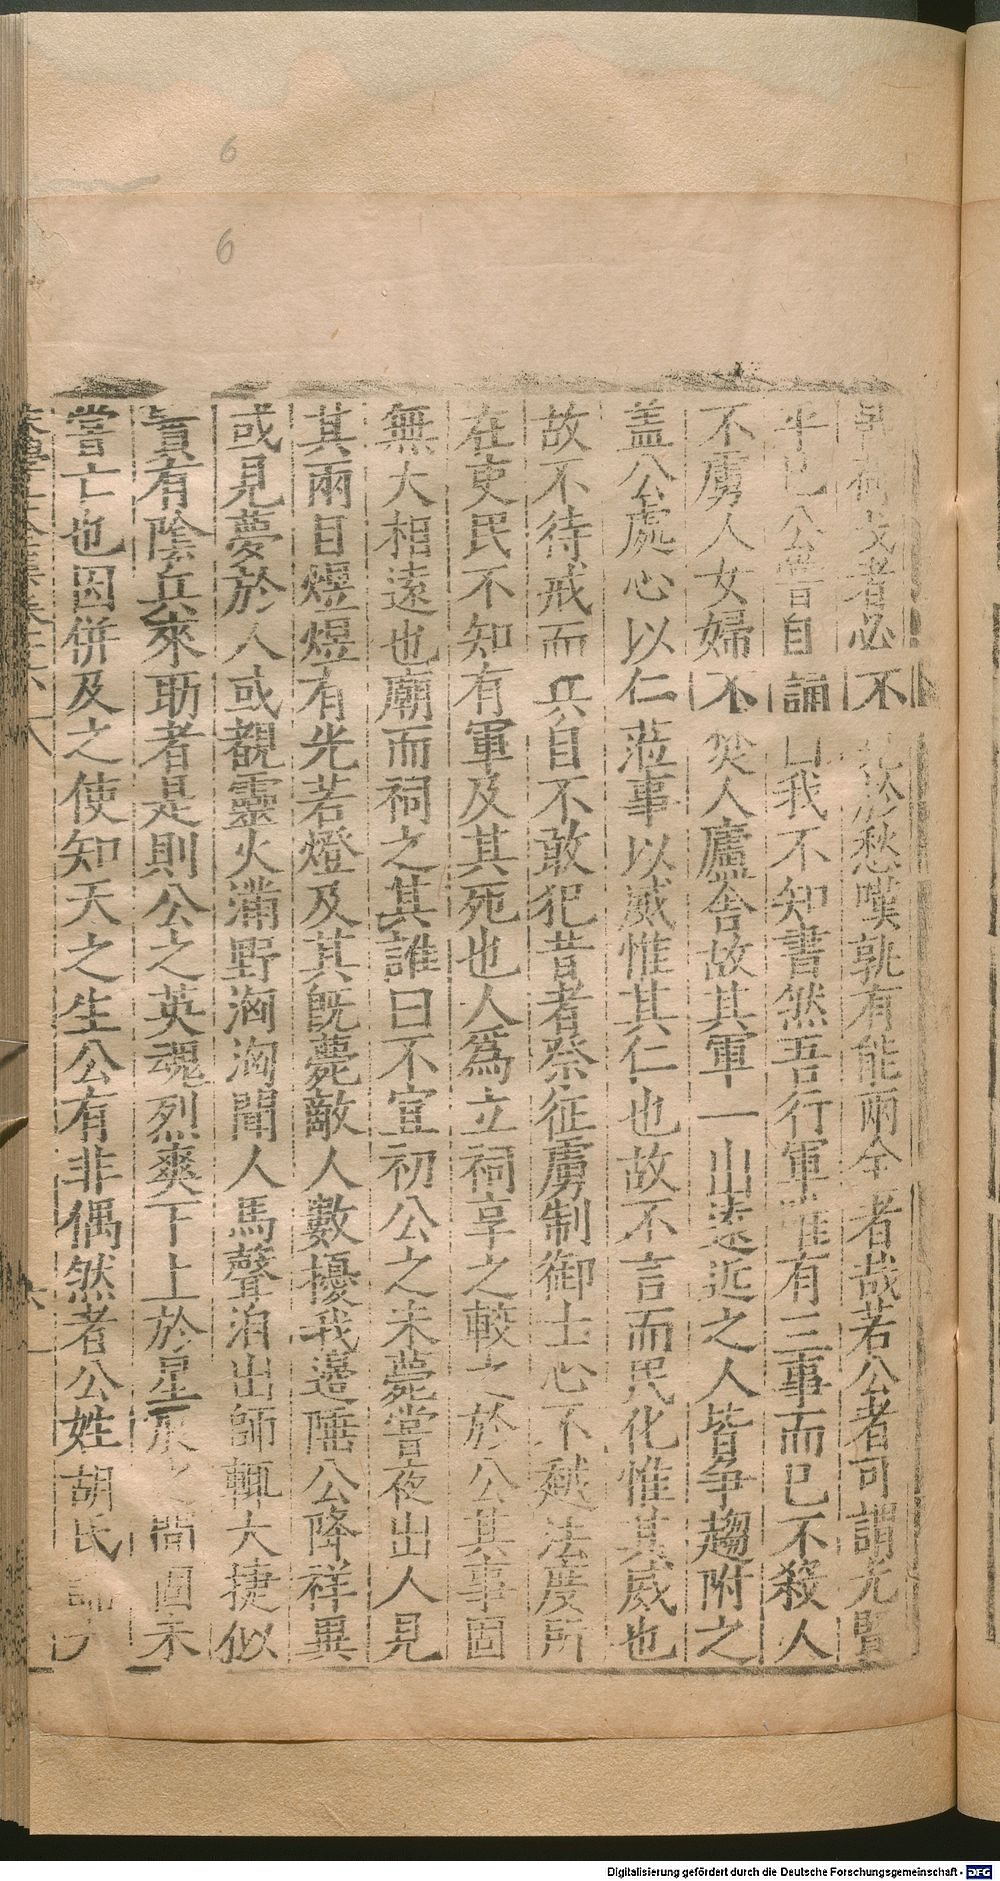 6
6
執荷戈者必不愁嘆孰有能兩全者哉若公者可謂尤賢
乎已公嘗自誦曰我不知書然吾行軍惟有三事而已不殺人
不虜人女婦不焚人廬舍故其軍一出遠近之人皆爭趨附之
盖公處心以仁蒞事以威惟其仁也故不言而民化惟其威也
故不待戒而兵自不敢犯昔者祭征虜制御士心不越法度所
在吏民不知有軍及其死也人爲立祠享之較之於公其事固
無大相遠也廟而祠之其誰曰不宜初公之未薨嘗夜出人見
其兩目熠煜有光若燈及其旣薨敵人數擾我邊陲公降祥異
或見夢於人或覩靈火滿野洶洶聞人馬聲洎出師輒大捷似
眞有陰兵來助者是則公之英魂烈爽下上於星辰之間固未
嘗亡也因併及之使知天之生公有非偶然者公姓胡氏諱大
宋學士全集卷之六
Digitalisierung gefördert durch die Deutsche Forschungsgemeinschaft - DFG